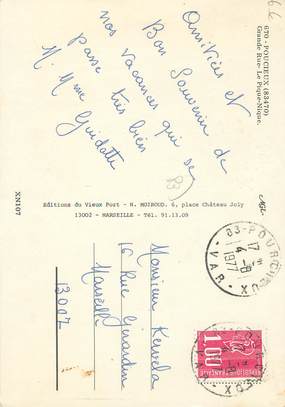 670 - POUCIEUX (83470)
Grande Rue- Le Pique-Nique.
Amitiés et
Bon Souvenir de
nos vacances qui se
passe très bien
M. Mme Guidotte
83
XN107
Editions du Vieux Port - H. MOIROUD. 6, place Château Joly
13002 - MARSEILLE - Tél. 91.13.09
83-POURCIEUX
17 H
4 -8
1977
VAR
1,00
REPUBLIQUE FRANÇAISE
Monsieur
16 Rue
Marseille
13007